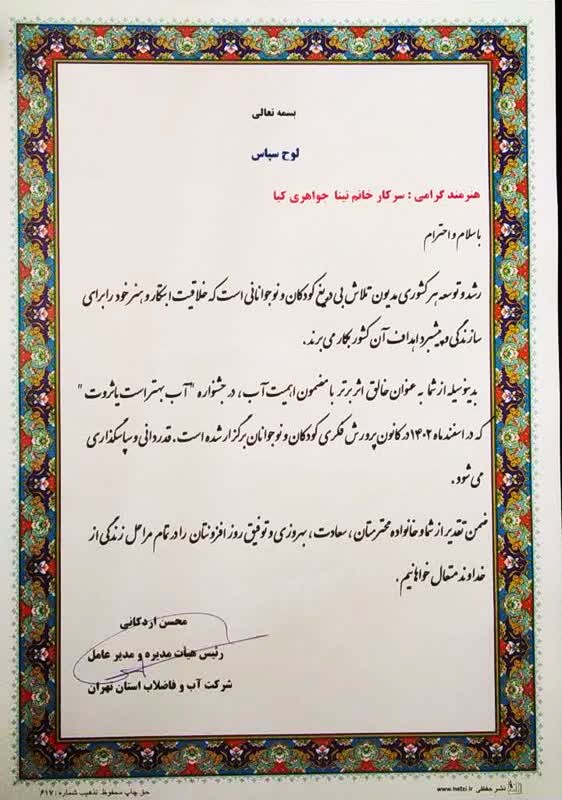 بسمه تعالی
لوح سپاس
هنرمند گرامی : سرکار خانم نینا جواهری کیا
با سلام و احترام
رشد و توسعه هر کشوری مدیون تلاش بی دریغ کودکان و نوجوانانی است که خلاقیت ابتکار و هنر خود را برای
سازندگی و پیشبرد اهداف آن کشور بکار می برند.
بدینوسیله از شما به عنوان خالق اثر برتر با مضمون اهمیت آب، در جشنواره "آب بهتر است یا ثروت"
که در اسفند ماه ۱۴۰۲ در کانون پرورش فکری کودکان و نوجوانان برگزار شده است. قدردانی و سپاسگذاری
می شود.
ضمن تقدیر از شما و خانواده محترمتان، سعادت، بهروزی و توفیق روز افزونتان را در تمام مراحل زندگی از
خداوند متعال خواهانیم.
محسن اردکانی
رئیس هیأت مدیره و مدیر عامل
شرکت آب و فاضلاب استان تهران
نشر حفظی www.hefzi.ir
حق چاپ محفوظ. تذهیب شماره : ۶۱۷